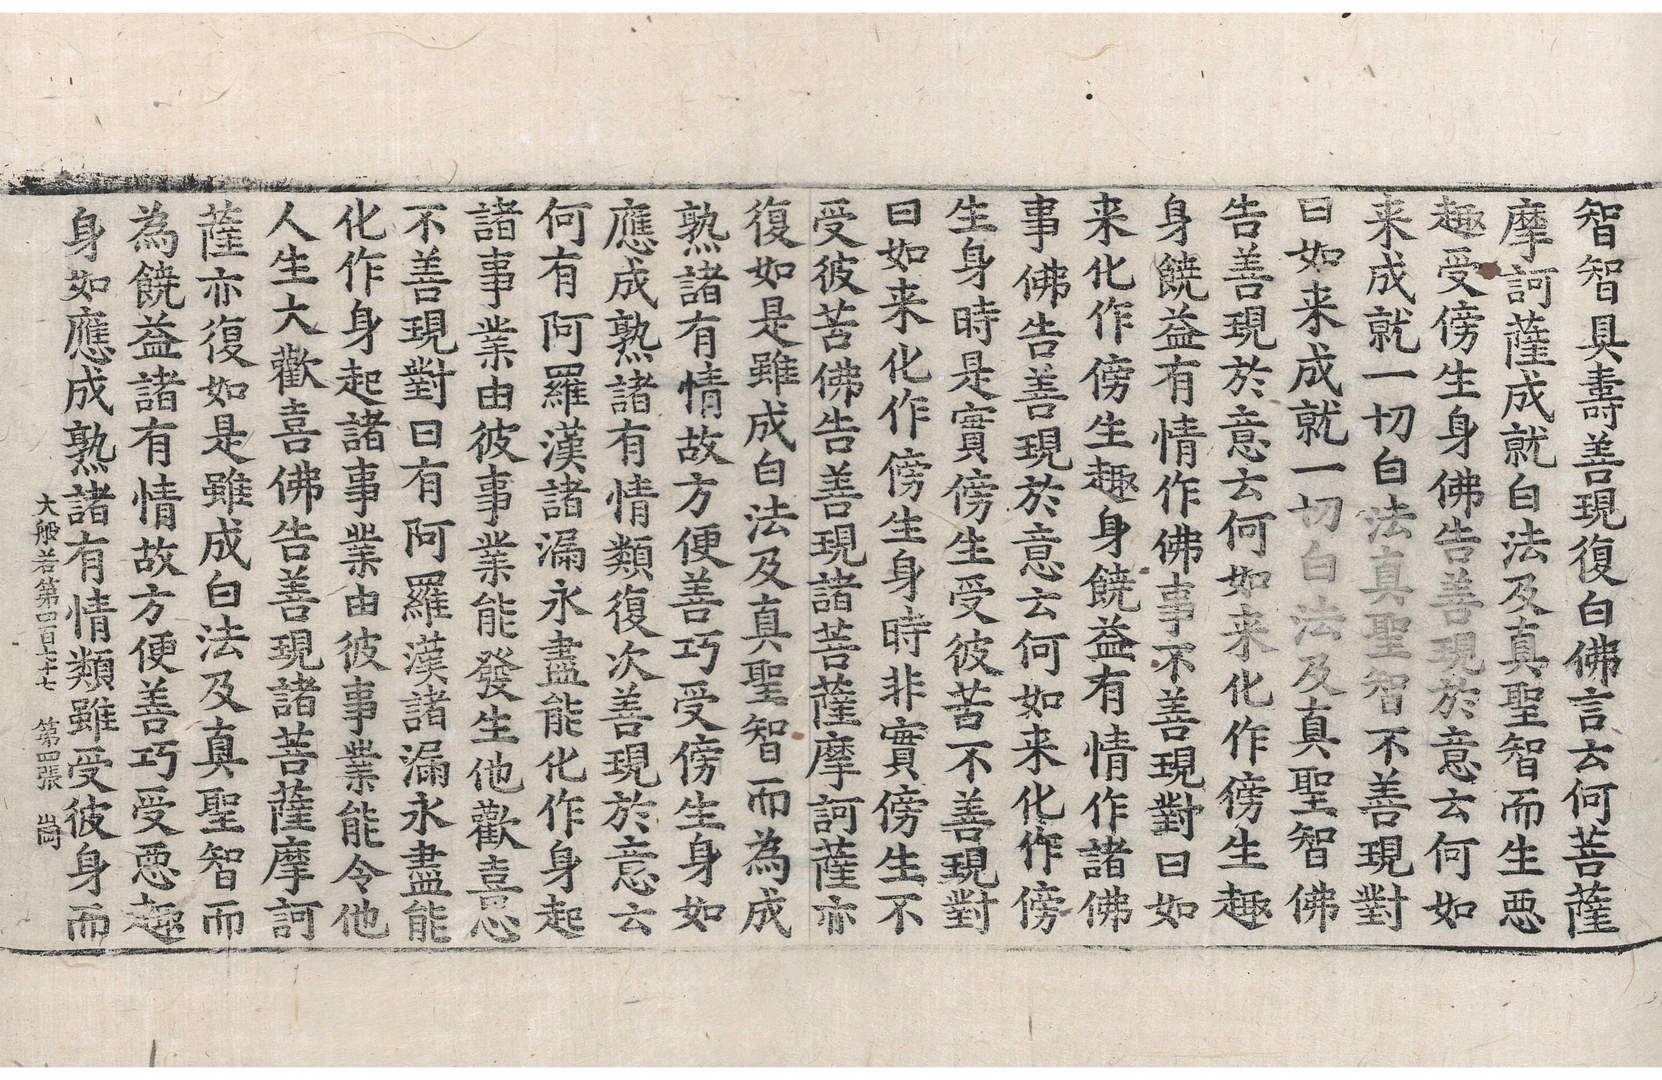 智智具壽善現復白佛言云何菩薩
摩訶薩成就白法及真聖智而生惡
趣受傍生身佛告善現於意云何如
来成就一切白法真聖智不善現對
曰如来成就一切白法及真聖智佛
告善現於意云何如来化作傍生趣
身饒益有情作佛事不善現對曰如
来化作傍生趣身饒益有情作諸佛
事佛告善現於意云何如来化作傍
生身時是實傍生受彼苦不善現對
曰如来化作傍生身時非實傍生不
受彼苦佛告善現諸菩薩摩訶薩亦
復如是雖成白法及真聖智而為成
熟諸有情故方便善巧受傍生身如
應成熟諸有情類復次善現於意云
何有阿羅漢諸漏永盡能化作身起
諸事業由彼事業能發生他歡喜忍
不善現對曰有阿羅漢諸漏永盡能
化作身起諸事業由彼事業能令他
人生大歡喜佛告善現諸菩薩摩訶
薩亦復如是雖成白法及真聖智而
為饒益諸有情故方便善巧受惡趣
身如應成熟諸有情類雖受彼身而
大般若第四百七十七 第四張 崗